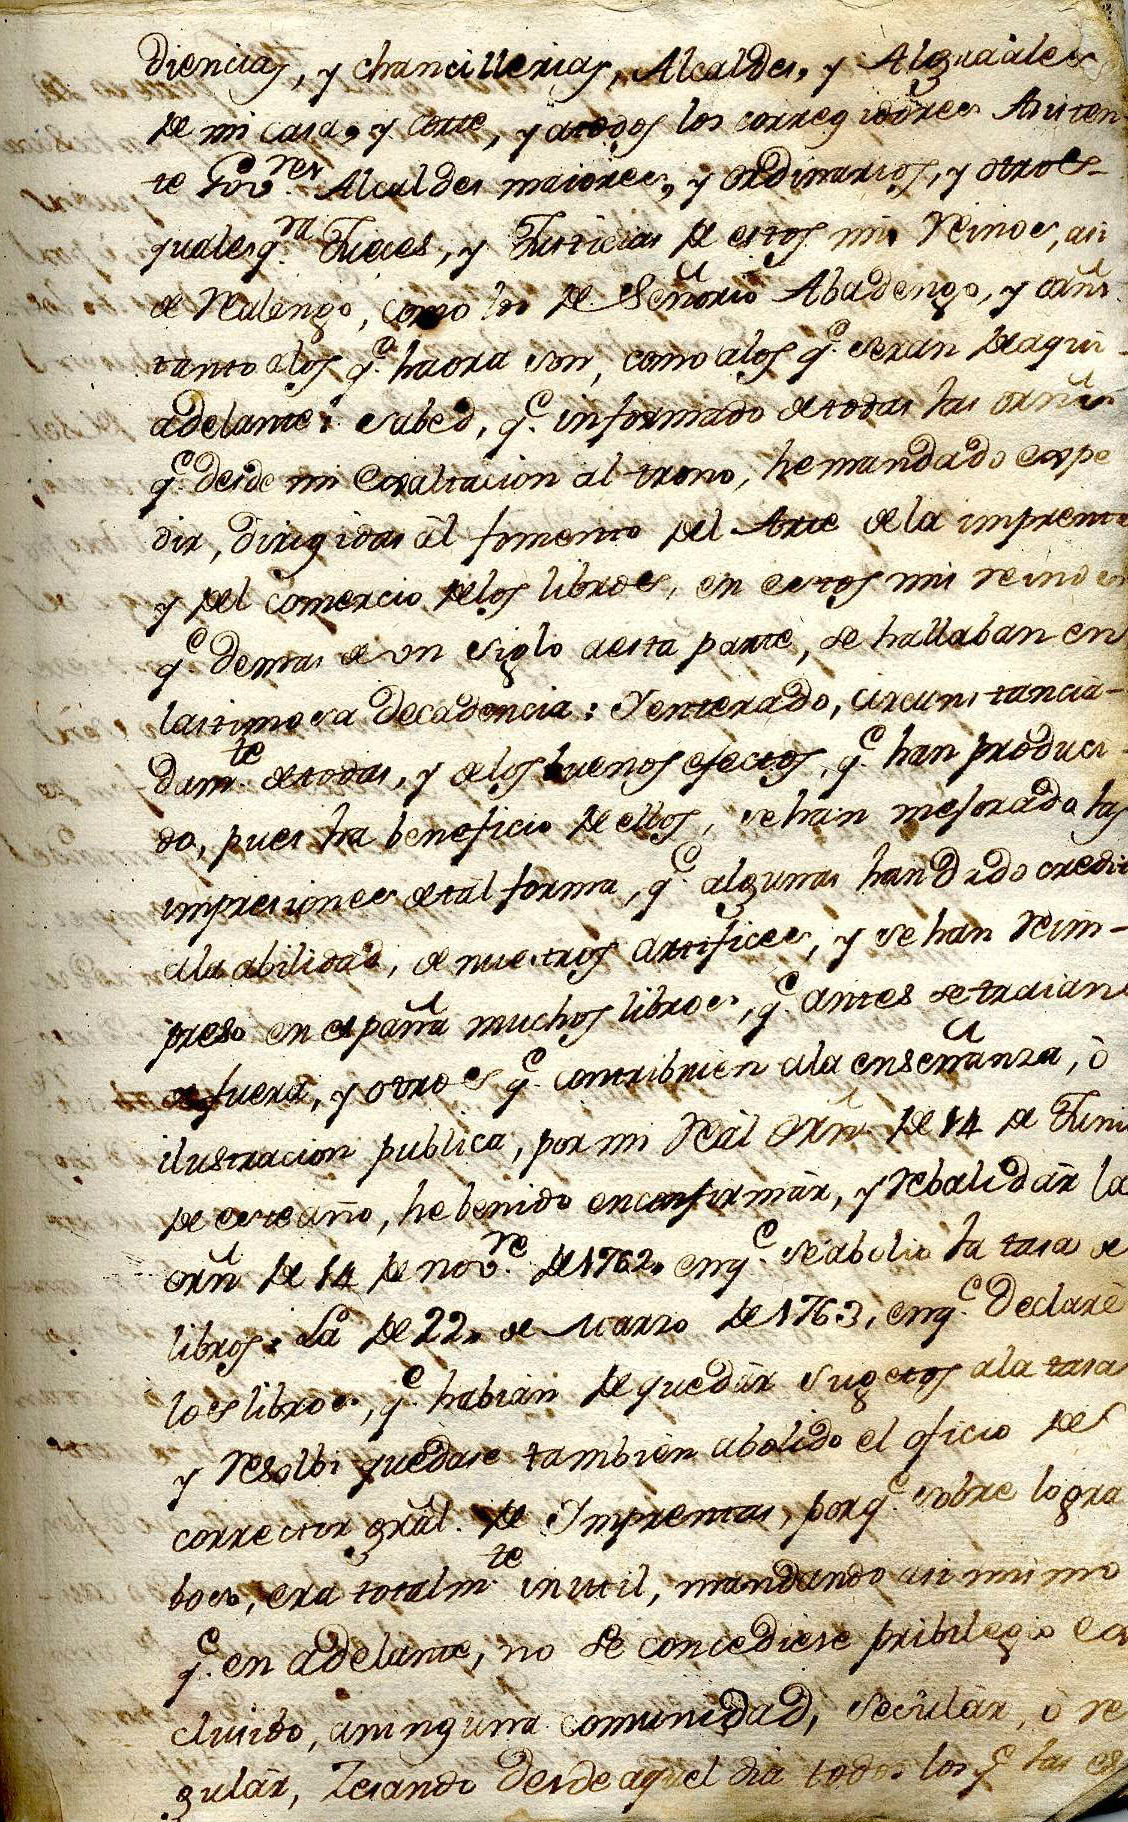 diencias, y chancillerias, Alcaldes, y Alguaciles
de mi casa, y Corte, y atodos los corregidores Asisten-
te Gov.res Alcaldes maiores, y ordinarios, y otros
qualesq.ra Jueces, y Justicias de estos mis Reinos, asi
de Realengo, como los de Señorio Abadengo, y orñs
tanto alos q.e haora son, como alos q.e seràn deaqui
adelante: sabed, q.e informado detodas las orñs
q.e desde mi Exaltacion al trono, hemandado expe
dir, dirigidas al fomento del Arte dela imprenta
y del comercio delos libros, en estos mis reinos
q.e demas de un siglo aesta parte, se hallaban en
lastimosa decadencia: Yenterado, circunstancia-
dam.te detodas, y delos buenos efectos, q.e han produci-
do, pues ha beneficio de ellos, sehan mejorado las
impresiones detal forma, q.e algunas han dado credit
ala abilidad, de nuestros artifices, y se han reim-
preso en españa muchos libros, q.e antes setraian
de fuera, y otros q.e contribuien ala enseñanza, ò
ilustracion publica, por mi Real Orñ de 14 de Juni
de este año, he benido enconfirmar, y rebalidàr la
orñ de 14 de nov.re de1762. enq.e seabolio la tasa de
libros: La de 22. de Marzo de 1763, enq.e declarè
los libros, q.e habian dequedàr sugetos ala tasa
y resolbi quedase tambien abolido el oficio del
corrector gràl. de Ymprentas, porq.e sobre logra
boso, era totalm.te inutil, mandando asimismo
q.e en adelante, no se concediese pribilegio ex
clusibo, aninguna comunidad, seculàr, ò re
gulàr, Zesando desdeaquel dia todos los q.e las es